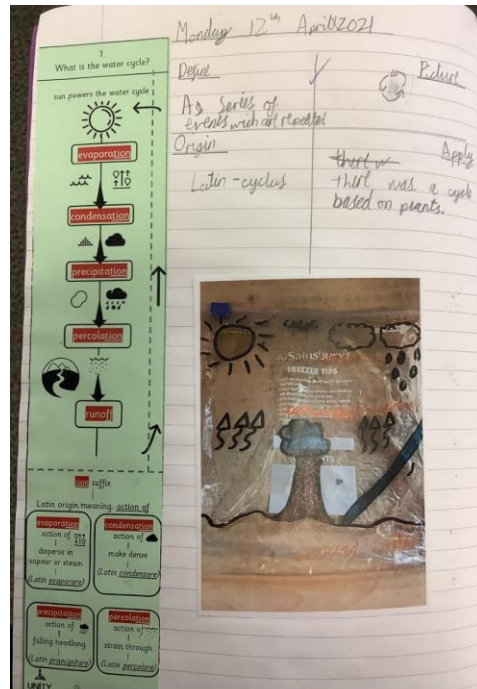 1
What is the water cycle?
sun powers the water cycle
evaporation
condensation
precipitation
percolation
runoff
tion suffix
Latin origin meaning: action of
evaporation
action of
disperse in
vapour or steam
(Latin evaporare)
condensation
action of
make dense
(Latin condensare)
precipitation
action of
falling headlong
(Latin praecipitare)
percolation
action of
strain through
(Latin percolare)
UNITY
Monday 12th April 2021
Define
As Series of
events wich are repeated
Origin
Latin - cyclus
Picture
Apply
there w
there was a cycle
based on plants.
Sainsbury's
FREEZER TIPS